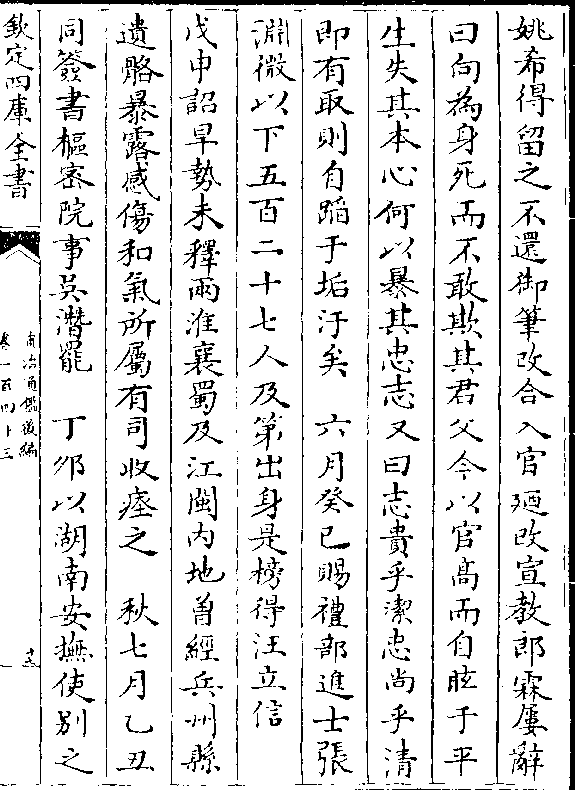 姚希得留之不還御筆改合入官𢌞改宣教郎霖屢辭
曰向為身死而不敢欺其君父今以官高而自眩于平
生失其本心何以暴其忠志又曰志貴乎潔忠尚乎清
即有取則自蹈于垢汙矣　六月癸巳賜禮部進士張
淵微以下五百二十七人及第出身是榜得汪立信
戊申詔旱勢未釋兩淮襄蜀及江閩内地曽經兵州縣
遺骼暴露感傷和氣所屬有司收瘞之　秋七月乙丑
同簽書樞密院事吳潛罷　丁夘以湖南安撫使别之
欽定四庫全書
資治通鑑後編
卷一百四十三